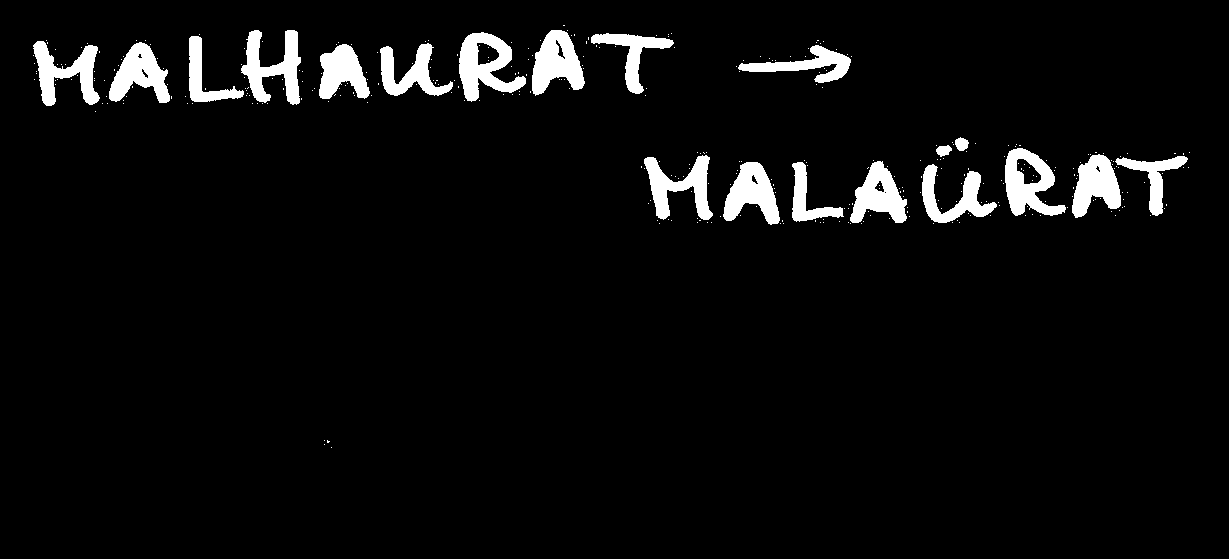 MALHAURAT →
MALAÜRAT